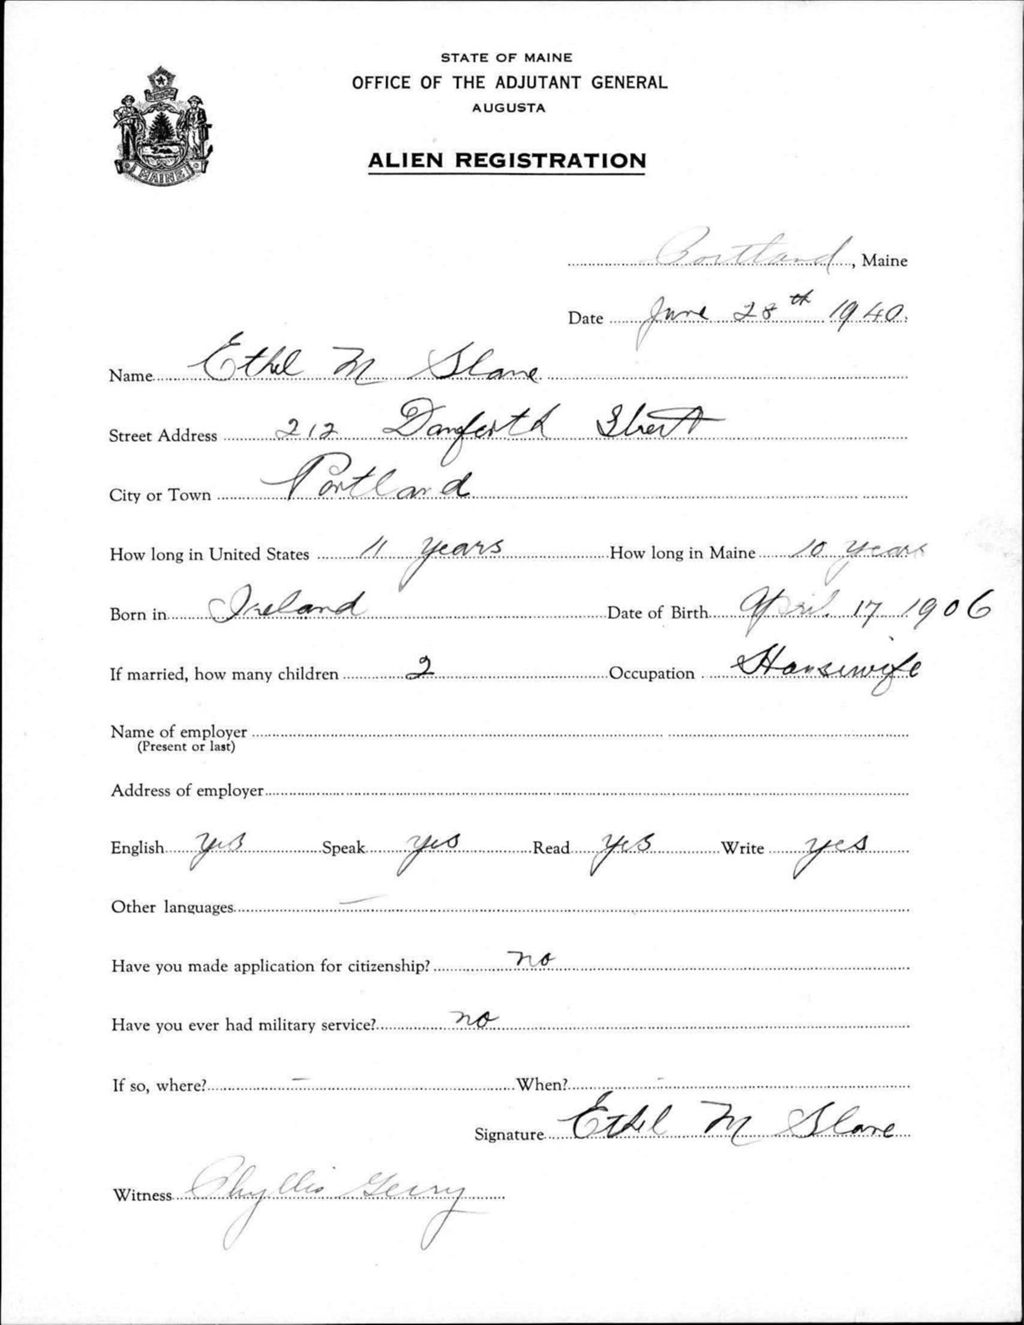 STATE OF MAINE
OFFICE OF THE ADJUTANT GENERAL
AUGUSTA
ALIEN REGISTRATION
MAINE
Portland, Maine
Date June 28th 1940.
Name Ethel M Slane
Street Address 212 Danforth Street
City or Town Portland
How long in United States 11 years How long in Maine 10 years
Born in Ireland Date of Birth April 17 1906
If married, how many children 2 Occupation Housewife
Name of employer
(Present or last)
Address of employer
English yes Speak yes Read yes Write yes
Other languages —
Have you made application for citizenship? no
Have you ever had military service? no
If so, where? – When? -
Signature Ethel M Slane
Witness Phyllis Gerry